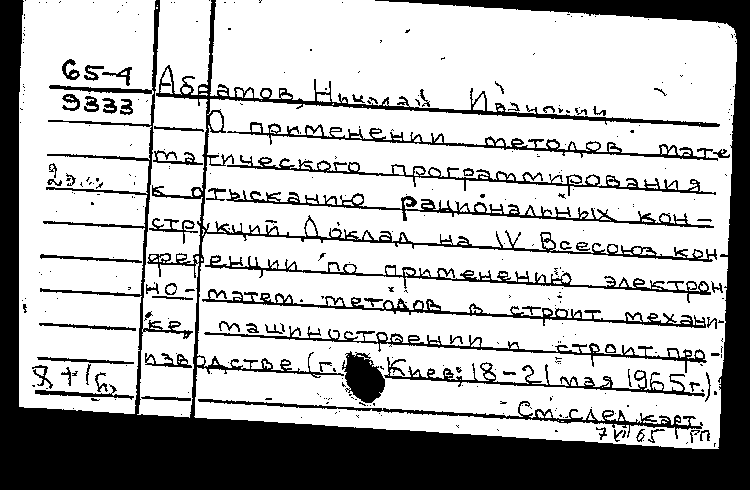 65-4
9333
Абрамов, Николай Иванович
О применении методов мате
матического программирования
к отысканию рациональных кон=
струкций. Доклад на IV Всесоюз. кон-
ференции по применению электрон
но-матем. методов в строит. механи-
ке, машиностроении и строит. про-
изводстве. (г. Киев; 18-21 мая 1965г.).
См. след. карт.
7 VII 65 РП